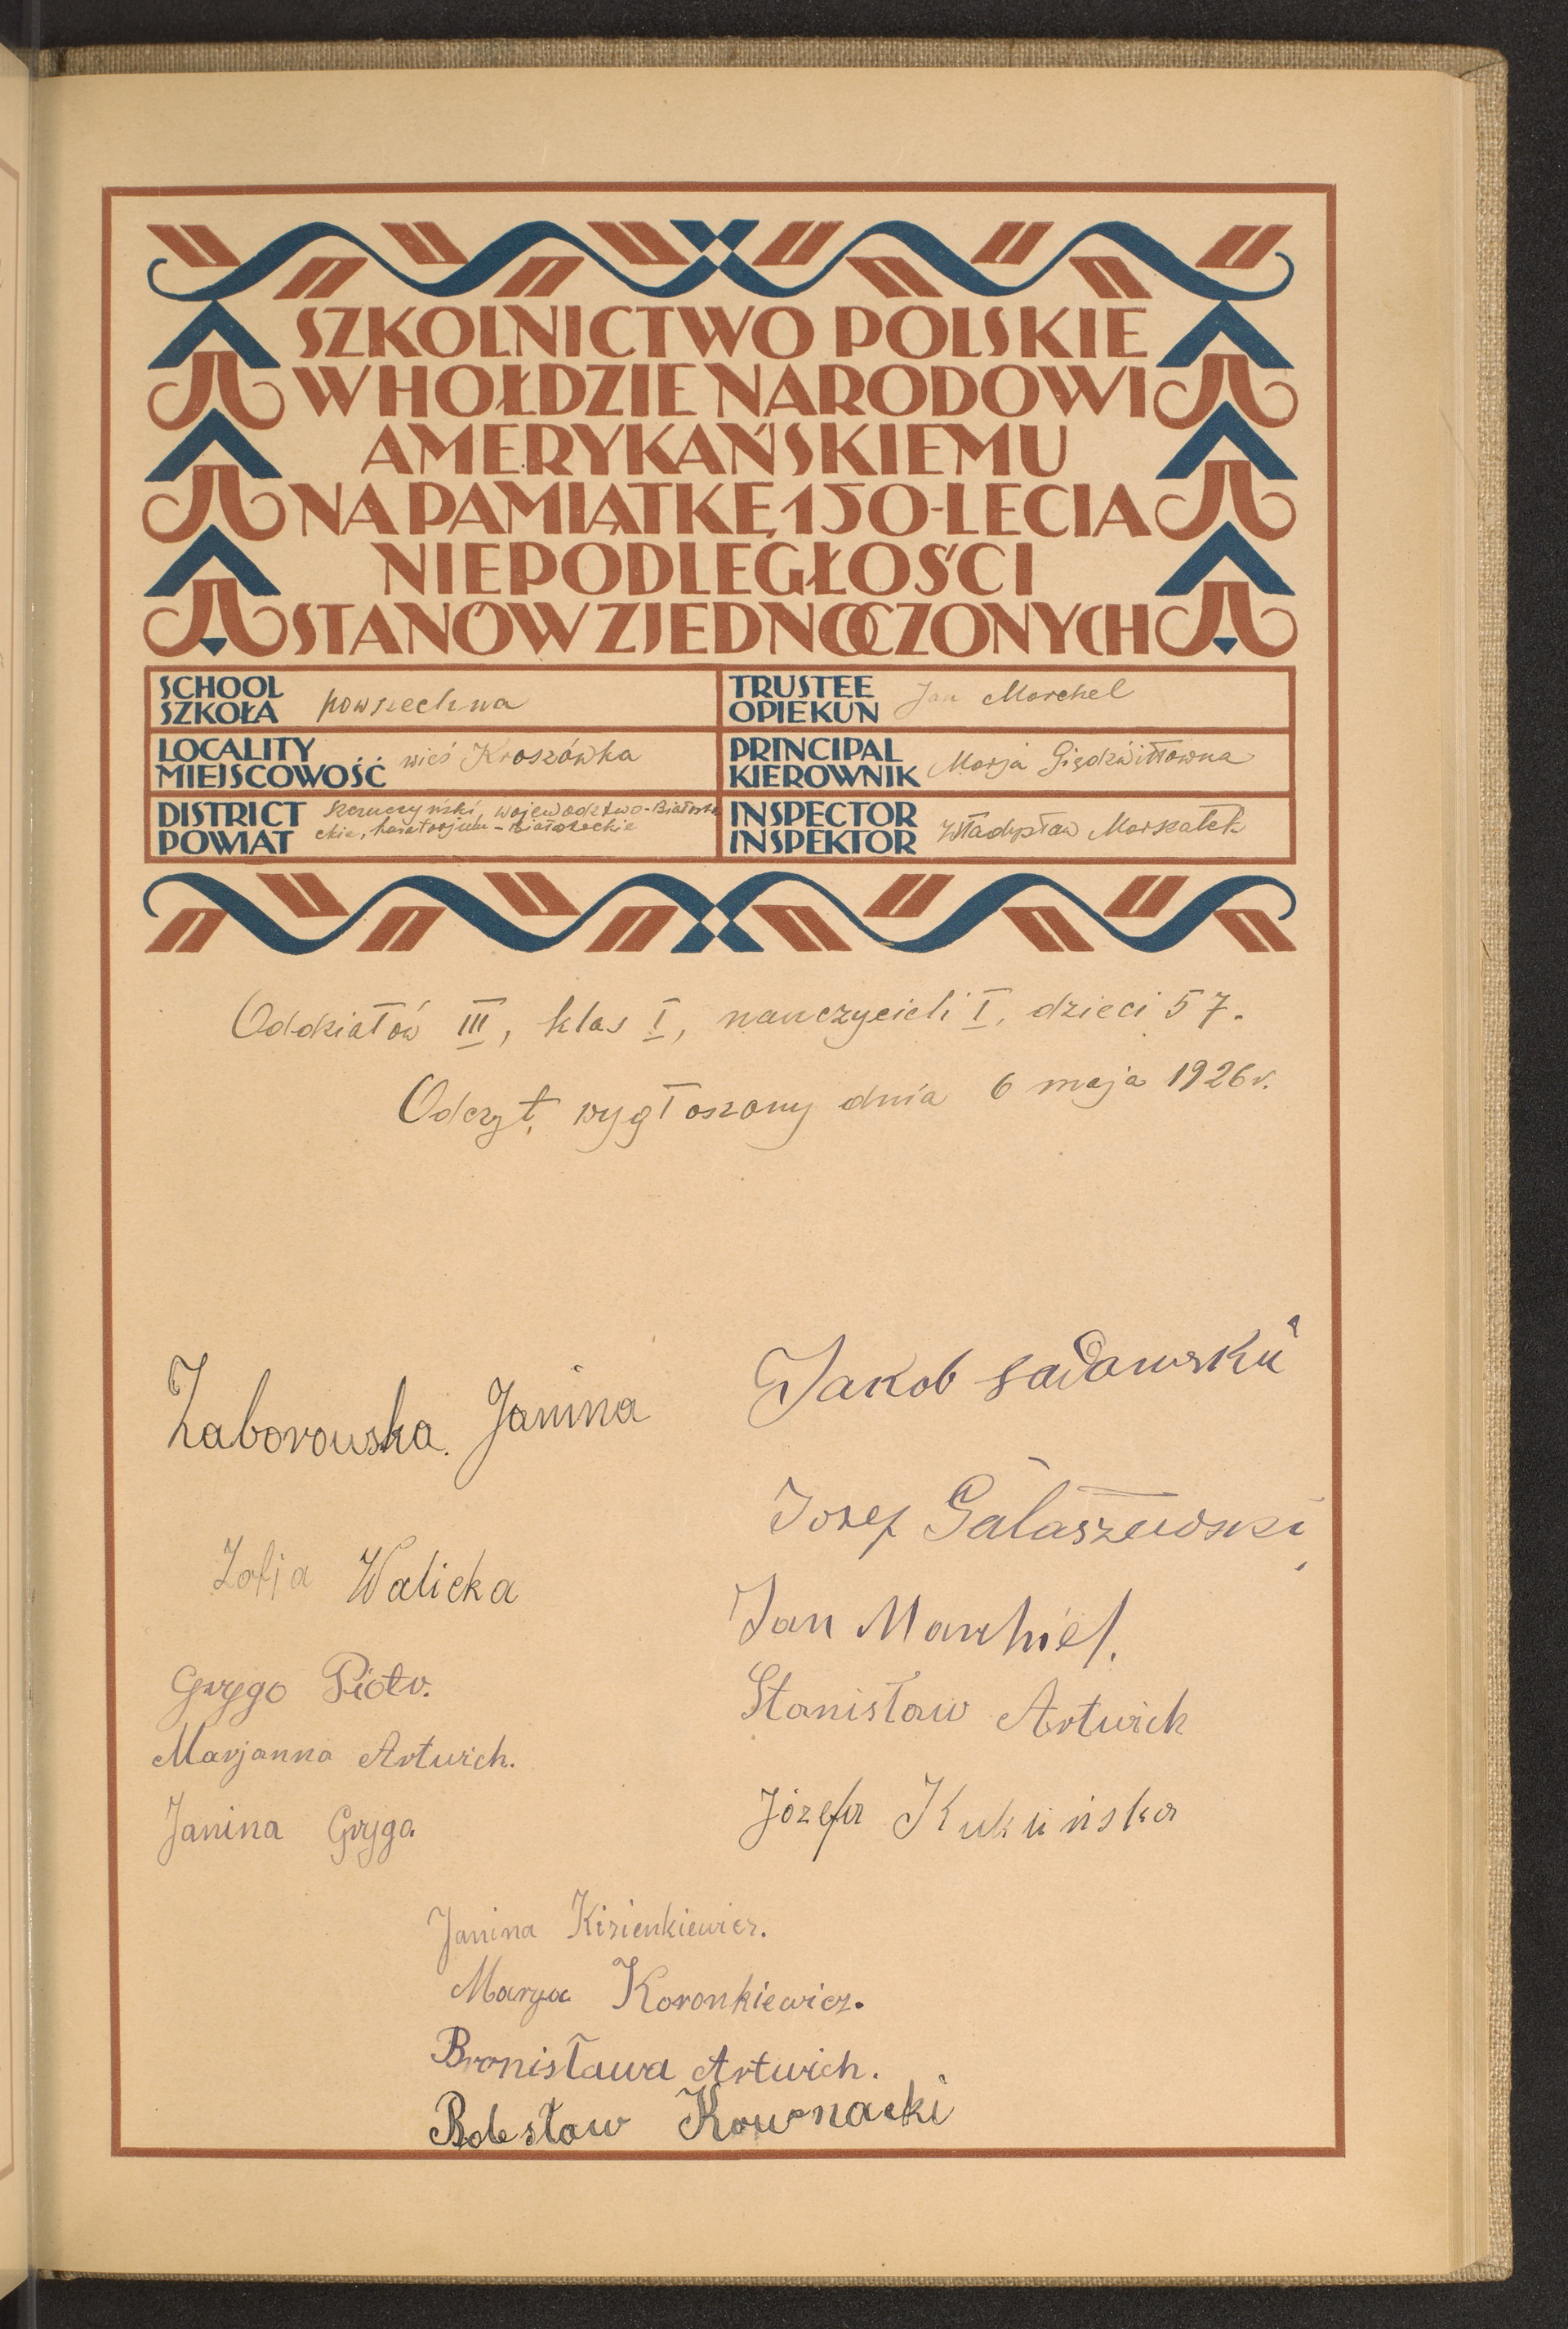 SZKOLNICTWO POLSKIE
W HOŁDZIE NARODOWI
AMERYKAŃSKIEMU
NA PAMIĄTKĘ 150-LECIA
NIEPODLEGŁOŚCI
STANÓW ZJEDNOCZONYCH
SCHOOL
SZKOŁA powszechna
TRUSTEE
OPIEKUN Jan Marchel
LOCALITY
MIEJSCOWOŚĆ wieś Kroszówka
PRINCIPAL
KIEROWNIK Marja
DISTRICT
POWIAT Szczuczyński, województwo-Białosto
ckie, kuratorjum-Białostockie
INSPECTOR
INSPEKTOR Władysław Marszałek
Oddziałów III, klas I, nauczycieli I, dzieci 57.
Odczyt wygłoszony dnia 6 maja 1926 r.
Zaborowska. Janina
Jakob Sadowski
Zofja Walicka
Józef Gałaszewski
Jan Marchiel.
Grygo Piotr.
Stanisław Artwich
Marjanna Artwich.
Janina Gryga
Józefa Kukuńska
Janina Kizienkiewicz.
Marya Koronkiewicz.
Bronisława Artwich.
Bolesław Kownacki